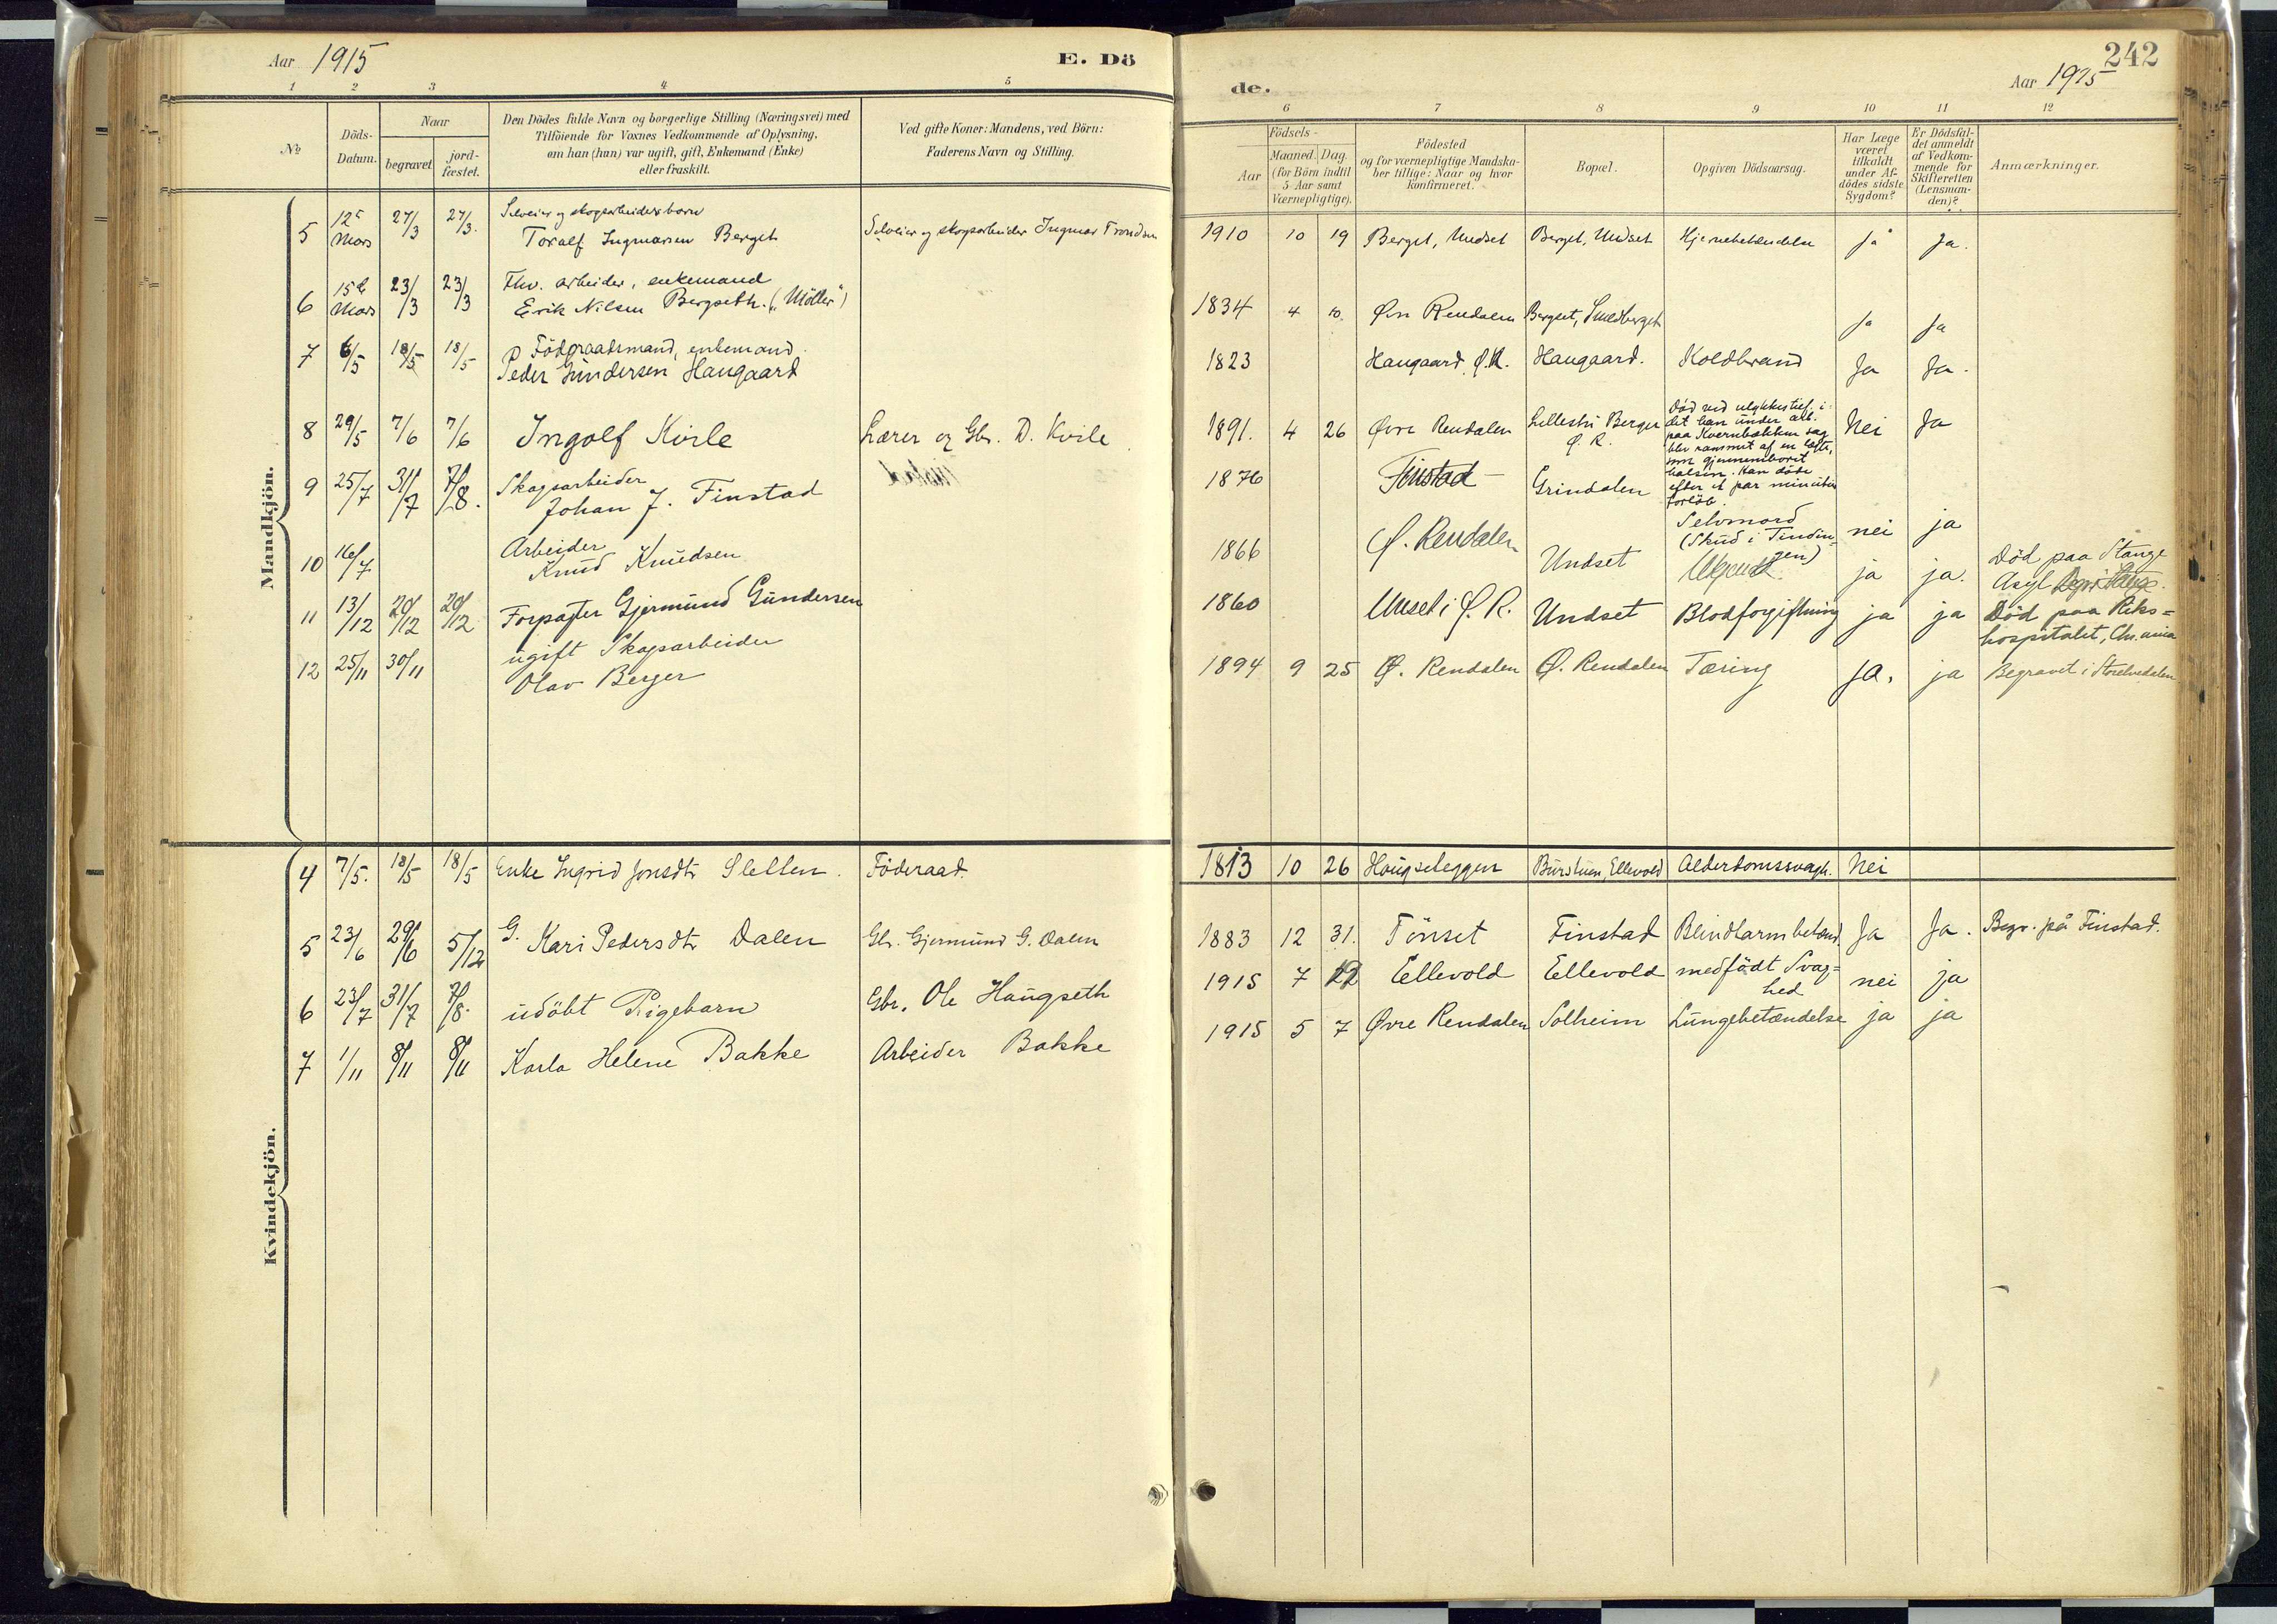 Aar 1915
E. Dö
1 2 3 4 5
№
Döds-
Datum.
Naar
begravet
jord-
fæstet.
Den Dödes fulde Navn og borgerlige Stilling (Næringsvei) med
Tilföiende for Voxnes Vedkommende af Oplysning,
om han (hun) var ugift, gift, Enkemand (Enke)
eller fraskilt.
Ved gifte Koner: Mandens, ved Börn:
Faderens Navn og Stilling.
Mandkjön.
Selveier og skogsarbeiders barn
5 12 Mars 27/3 27/3. Toralf Ingmarsen Berget Selveier og skogsarbeider Ingmar Trondsen
Fhv. arbeider, enkemand
6 15de Mars 23/3 23/3 Erik Nilsen Bergseth. ("Möller")
Födraadsmand, enkemand.
7 6/5 18/5 18/5 Peder Gundersen Haugaard
8 29/5 7/6 7/6 Ingolf Kvile Lærer og Gbr. D. Kvile
Skogsarbeider
9 25/7 31/7 7/8. Johan J. Finstad
Arbeider
10 16/7 Knud Knudsen
11 13/12 20/12 20/12 Forpagter Gjermund Gundersen
ugift Skogsarbeider
12 25/11 30/11 Olav Berger
Kvindekjön.
4 7/5. 18/5 18/5 Enke Ingrid Jonsdtr Sletten. Föderaad.
5 23/6 29/6 5/12 G. Kari Pedersdtr Dalen Gbr. Gjermund G. Dalen
6 23/7 31/7 7/8. udöbt Pigebarn Gbr. Ole Haugseth
7 1/11 8/11 8/11 Karla Helene Bakke Arbeider Bakke
242
de.
Aar 1915
6 7 8 9 10 11 12
Födsels-
Aar
Maaned. Dag.
(for Börn indtil
5 Aar samt
Værnepligtige).
Födested
og for værnepligtige Mandska-
ber tillige: Naar og hvor
konfirmeret.
Bopæl.
Opgiven Dödsaarsag.
Har Læge
været
tilkaldt
under Af-
dödes sidste
Sygdom?
Er Dödsfal-
det anmeldt
af Vedkom-
mende for
Skifteretten
(Lensman-
den)?
Anmærkninger.
1910 10 19 Berget, Undset Berget, Undset Hjernebetændelse Ja Ja.
1834 4 10. Øvre Rendalen Bergset, Smedberget Ja Ja
1823 Haugaard, Ø.R. Haugaard. Koldbrand Ja Ja.
1891. 4 26 Øvre Rendalen Lillestu Berger Ø. R. Nei Ja
Död ved ulykkestilf. i
det han under arb.
paa Kvernbakken sag
blev rammet af en
som gjennemboret
halsen. Han döde
efter et par minutters
forlöb.
1876 Finstad Grindalen Selvmord
(Skud i Tindin-
gen) nei ja
1866 Ø. Rendalen Undset ja ja. Död paa Stange
Asyl
1860 Unset i Ø. R. Undset Blodforgiftning ja ja Död paa Riks-
hospitalet, Chr.ania
1894 9 25 Ø. Rendalen Ø. Rendalen Tæring ja. ja Begravet i Storelvedalen
1813 10 26 Haugseteggen Burstuen, Ellevold Alderdomssvagh. Nei
1883 12 31. Tönset Finstad Blindtarmbetænd. Ja Ja. Begr. på Finstad.
1915 7 22 Ellevold Ellevold medfödt Svag-
hed nei ja
1915 5 7 Øvre Rendalen Solheim Lungebetændelse ja ja